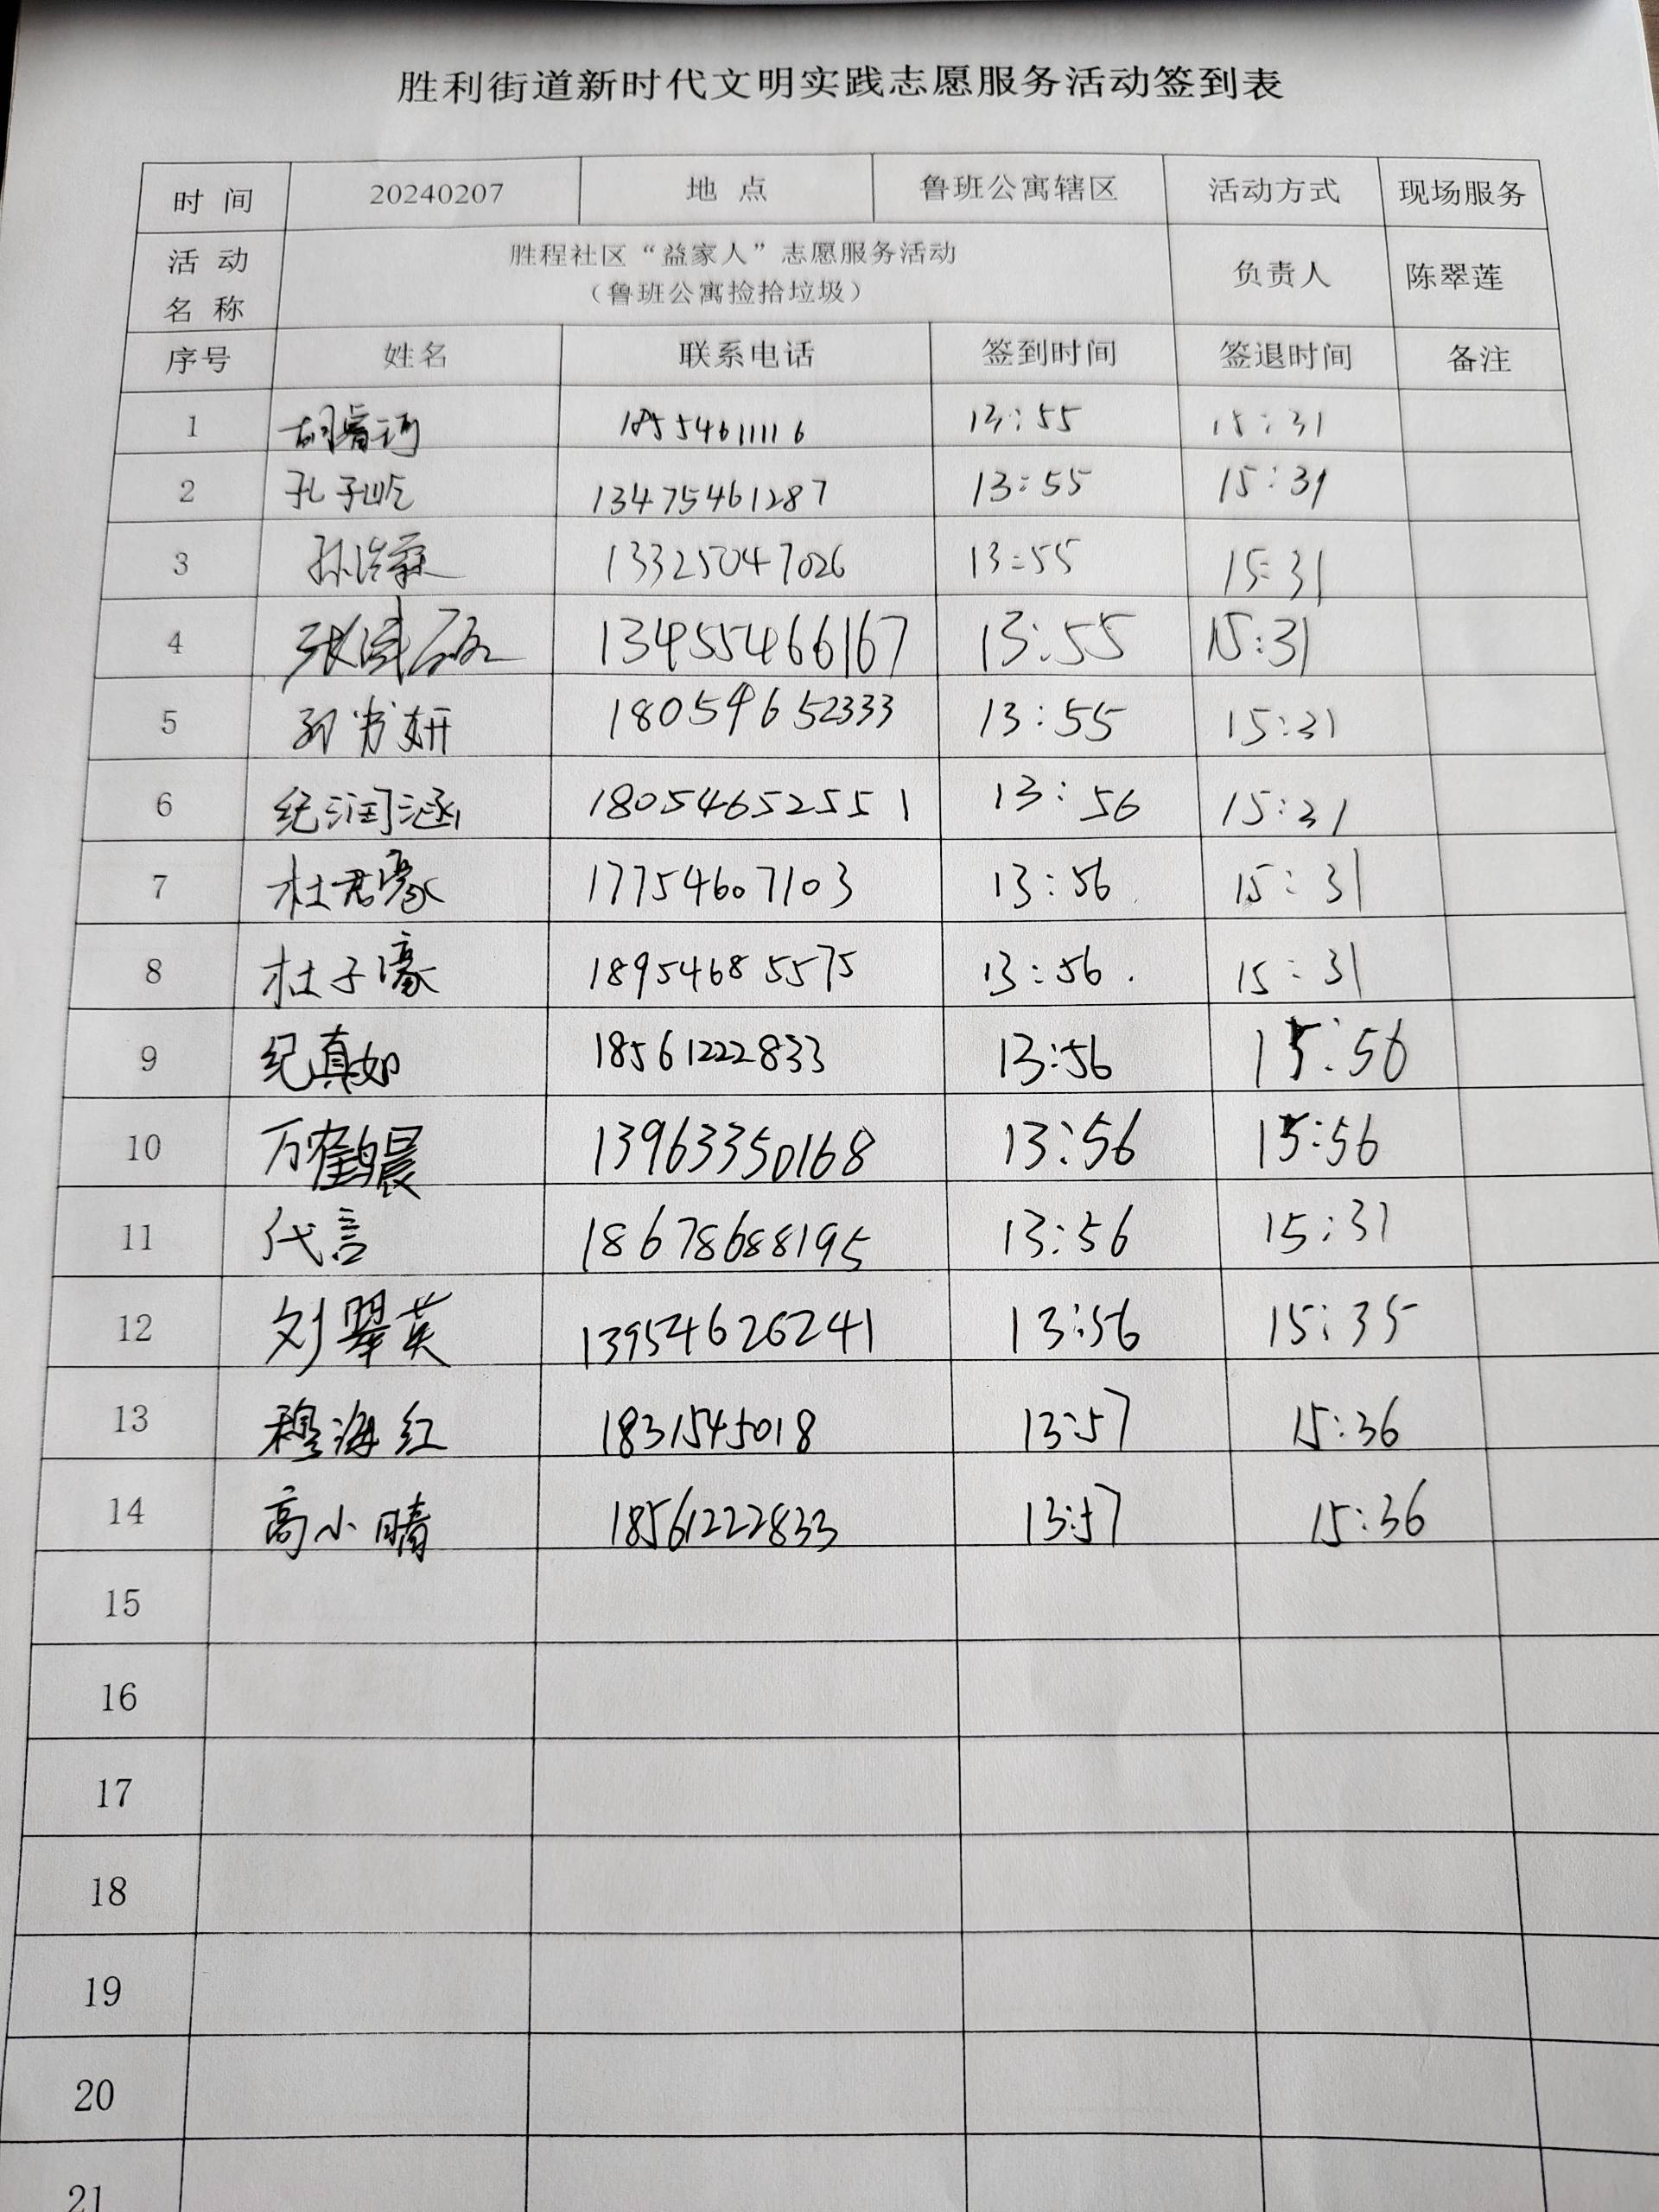 胜利街道新时代文明实践志愿服务活动签到表
时 间 20240207 地 点 鲁班公寓辖区 活动方式 现场服务
活 动 名 称 胜程社区“益家人”志愿服务活动 负责人 陈翠莲
（鲁班公寓捡拾垃圾）
序号 姓名 联系电话 签到时间 签退时间 备注
1 胡睿 18554611116 13:55 15:31
2 孔子屹 13475461287 13:55 15:31
3 孙浩 13325047026 13:55 15:31
4 张 13455466167 13:55 15:31
5 妍 18054652333 13:55 15:31
6 纪润涵 18054652551 13:56 15:31
7 杜君豪 17754607103 13:56 15:31
8 杜子濠 18954685575 13:56 15:31
9 纪真如 18561222833 13:56 15:56
10 万鹤晨 13963350168 13:56 15:56
11 代言 18678688195 13:56 15:31
12 刘翠英 13954626241 13:56 15:35
13 穆海红 1831545018 13:57 15:36
14 高小晴 18561222833 13:57 15:36
15
16
17
18
19
20
21